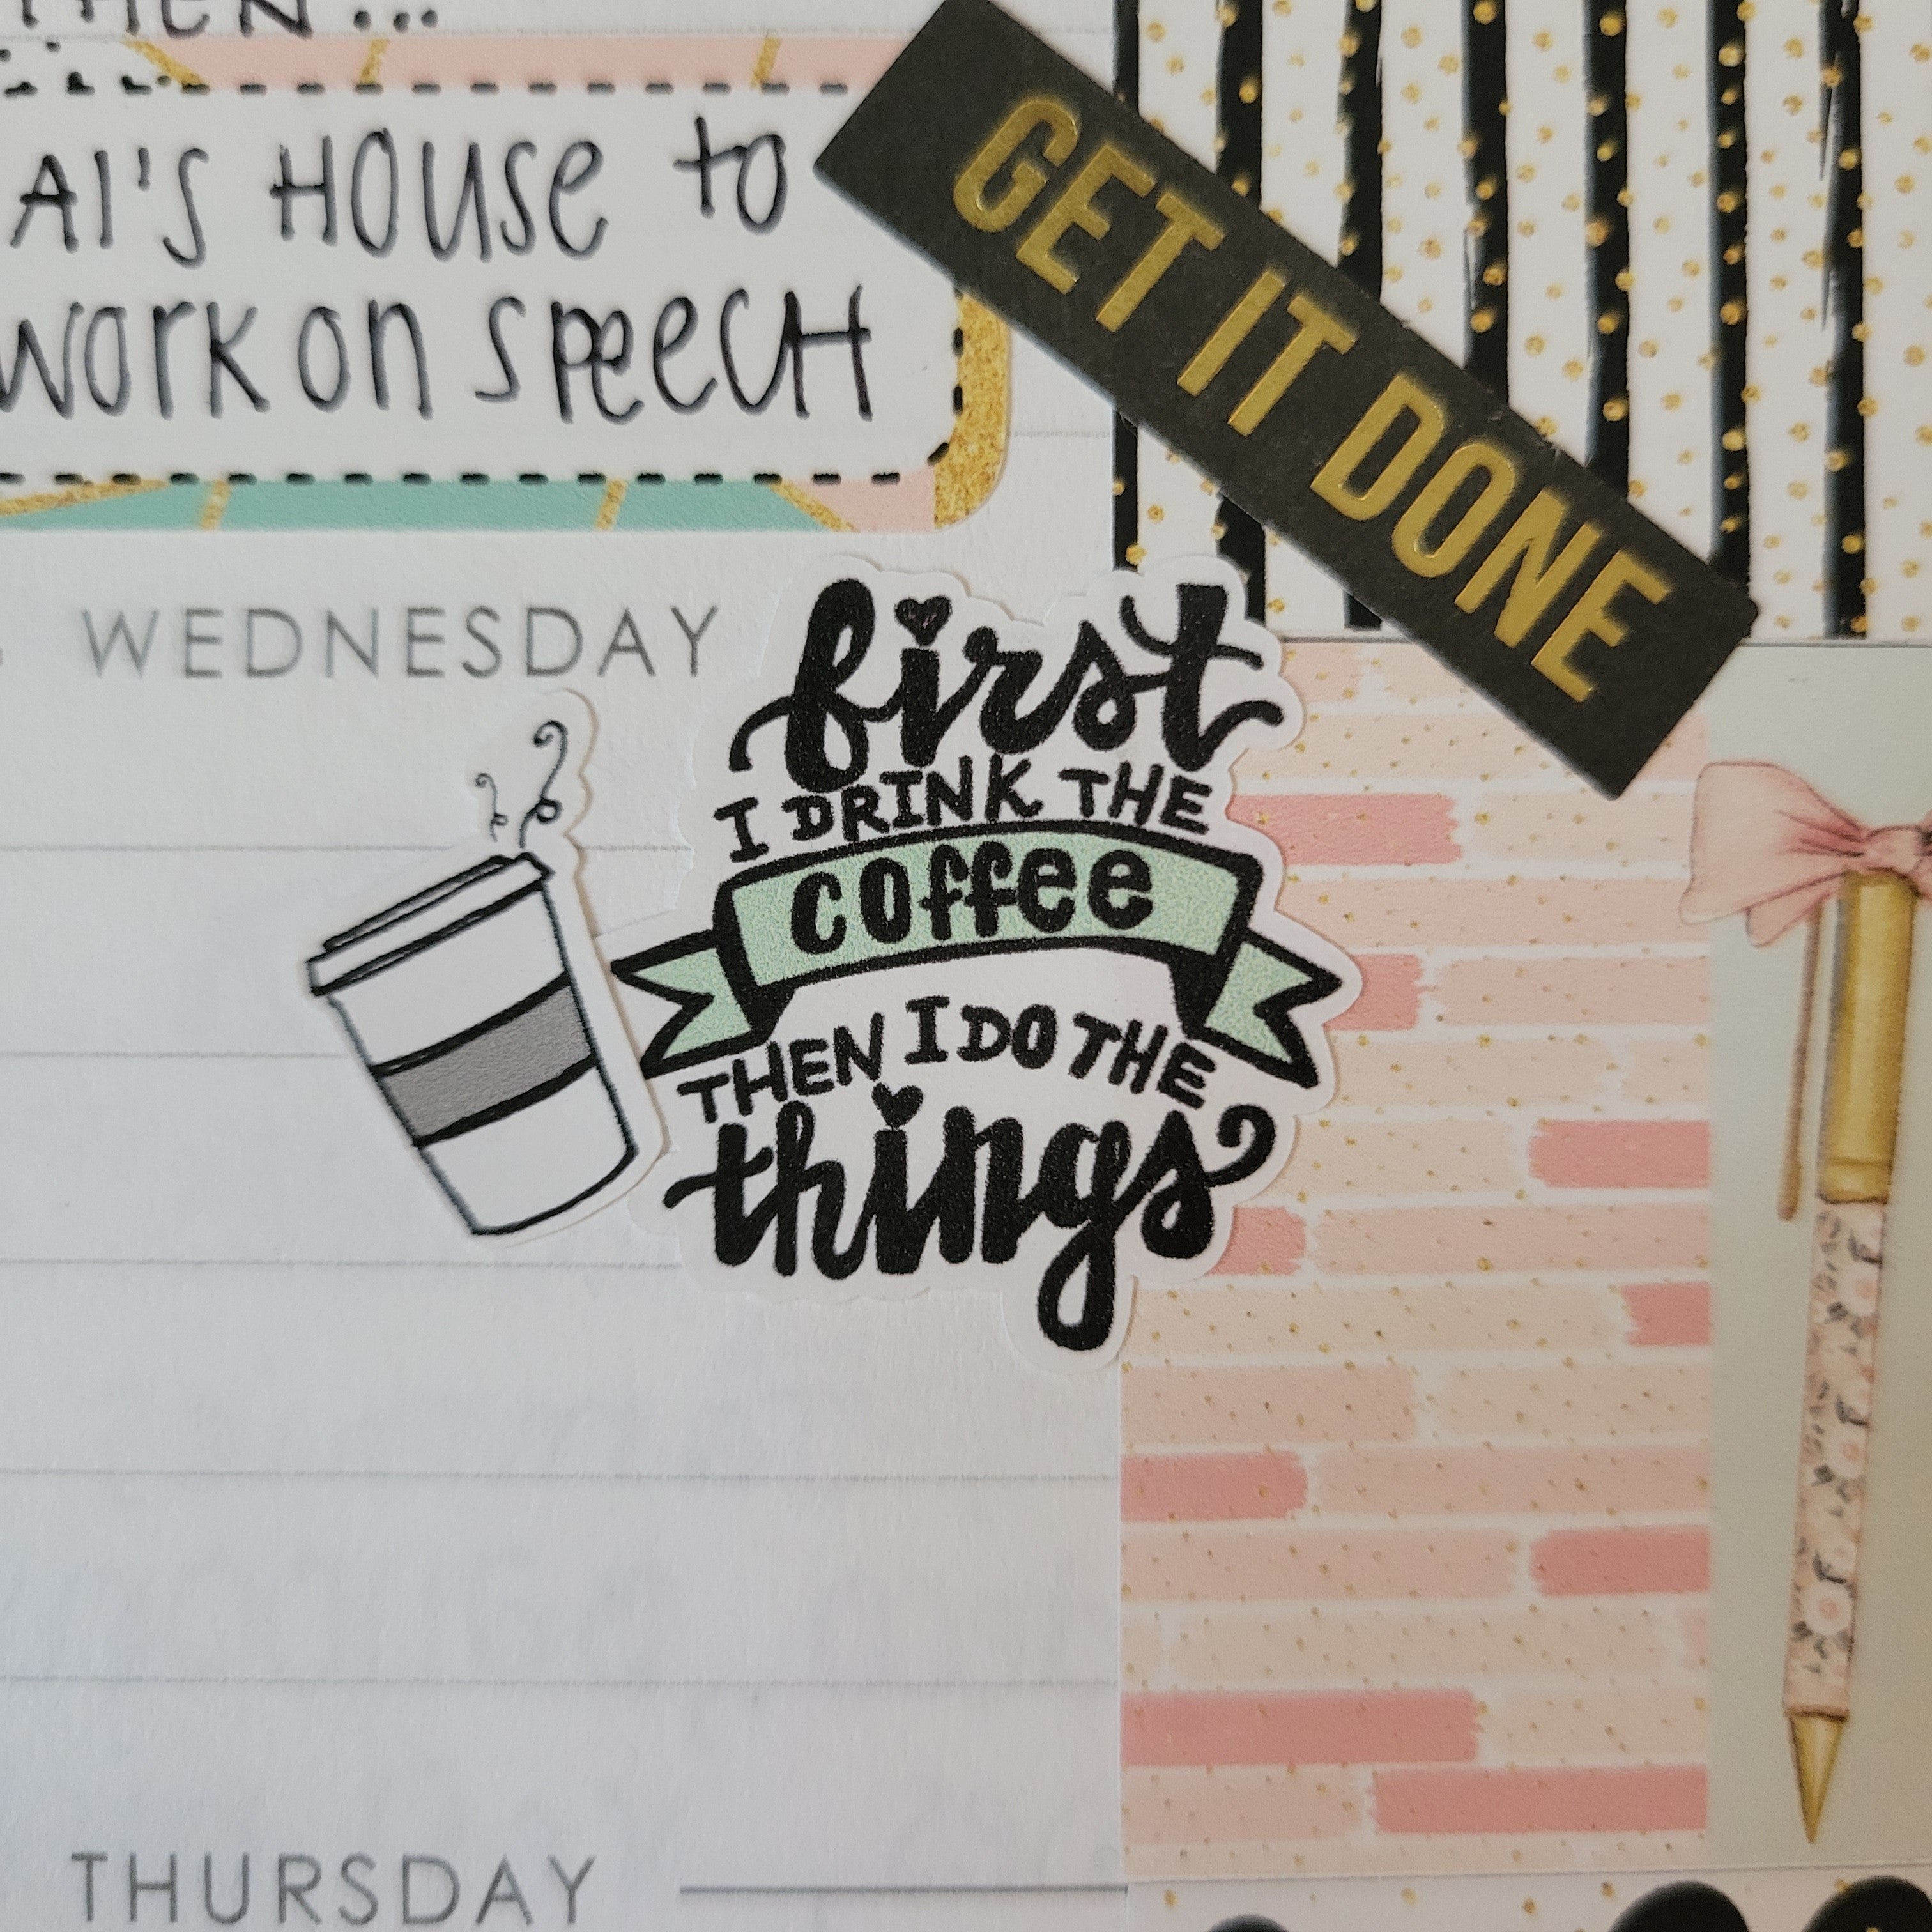 THEN...
AI'S HOUSE to
WORK ON SPEECH
GET IT DONE
WEDNESDAY
first
I DRINK THE
coffee
THEN I DO THE
things
THURSDAY